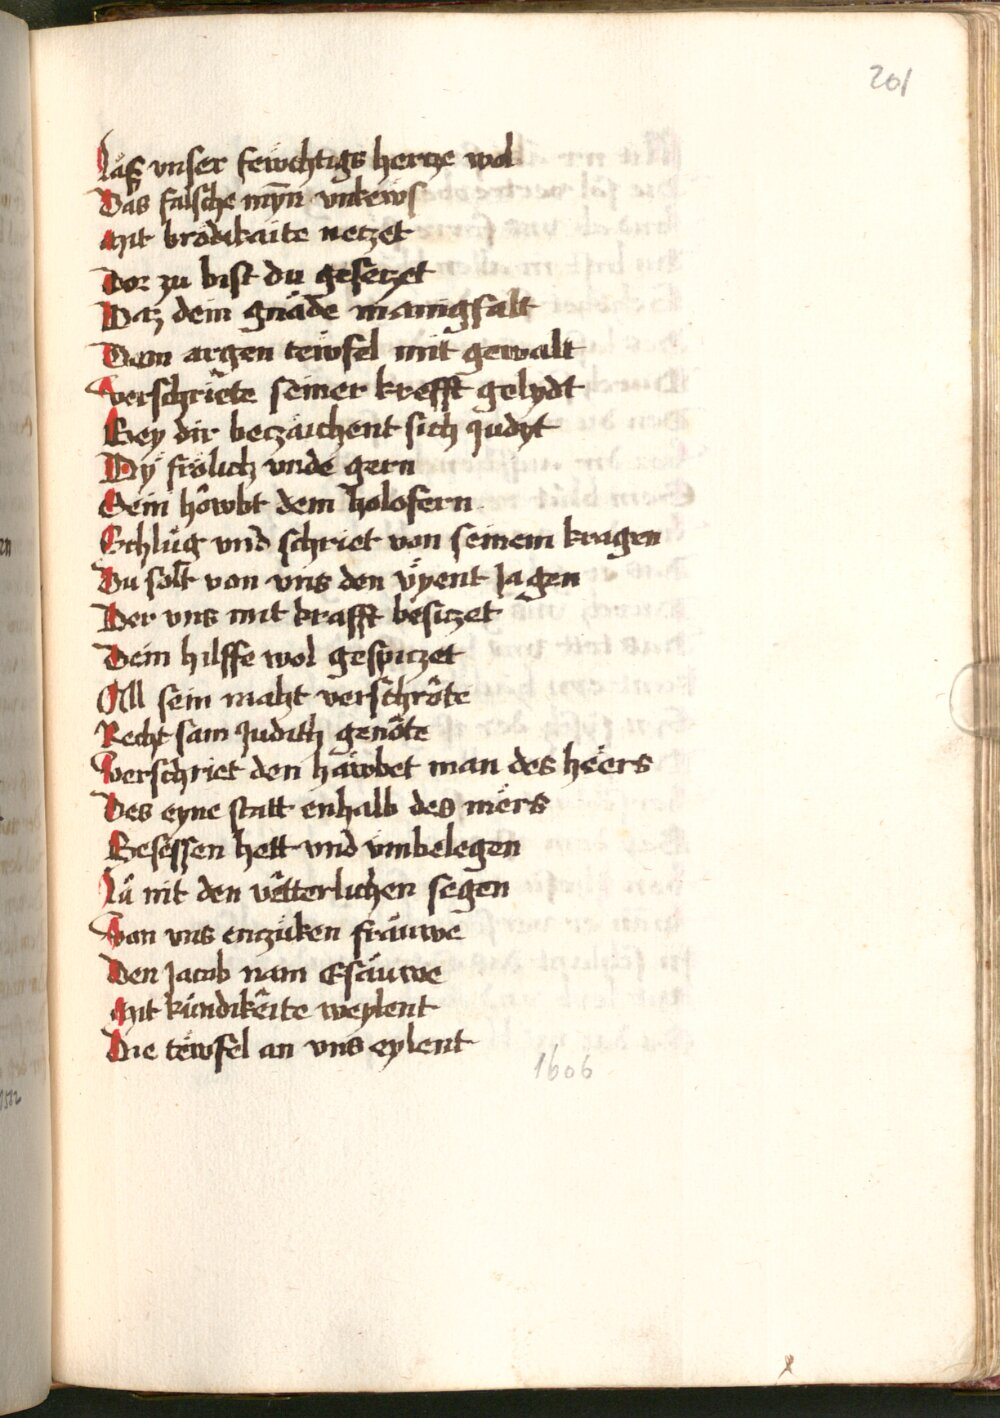 201
Läß vnser fewchtigs hertze wol
Das falsche myn̄ vnkews
Mit brödikaite netzet
Dor zu bist du gesetzet
Daz dein gnäde manigfalt
Dem argen tewfel mit gewalt
Verschriete seiner krefft gelydt
Bey dir beczäichent sich Judyt
Dy frölich vnde gern
Sein hôwbt dem holofern
Schlüg vnd schriet von seinem kragen
Du solt von vns den vÿent Jagen
Der vns mit krafft besitzet
Dein hilffe wol gespitzet
All sein maht verschrôte
Recht sam Judith genôte
Verschriet den häwbet man des heers
Des eyne statt enhalb des mers
Besessen hett vnd vmbelegen
Lä nit den vêtterlichen segen
Von vns enczüken fräuwe
Den Jacob nam Esäuwe
Mit kündikêite weylent
Die tewfel an vns eylent
1606